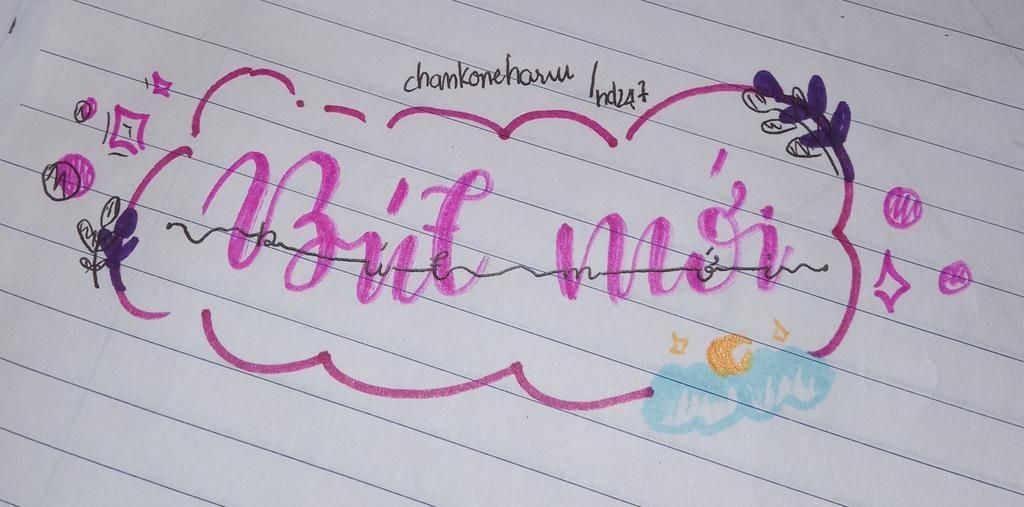 chamkoneharuu /ndz47
Bút mới
bút mới